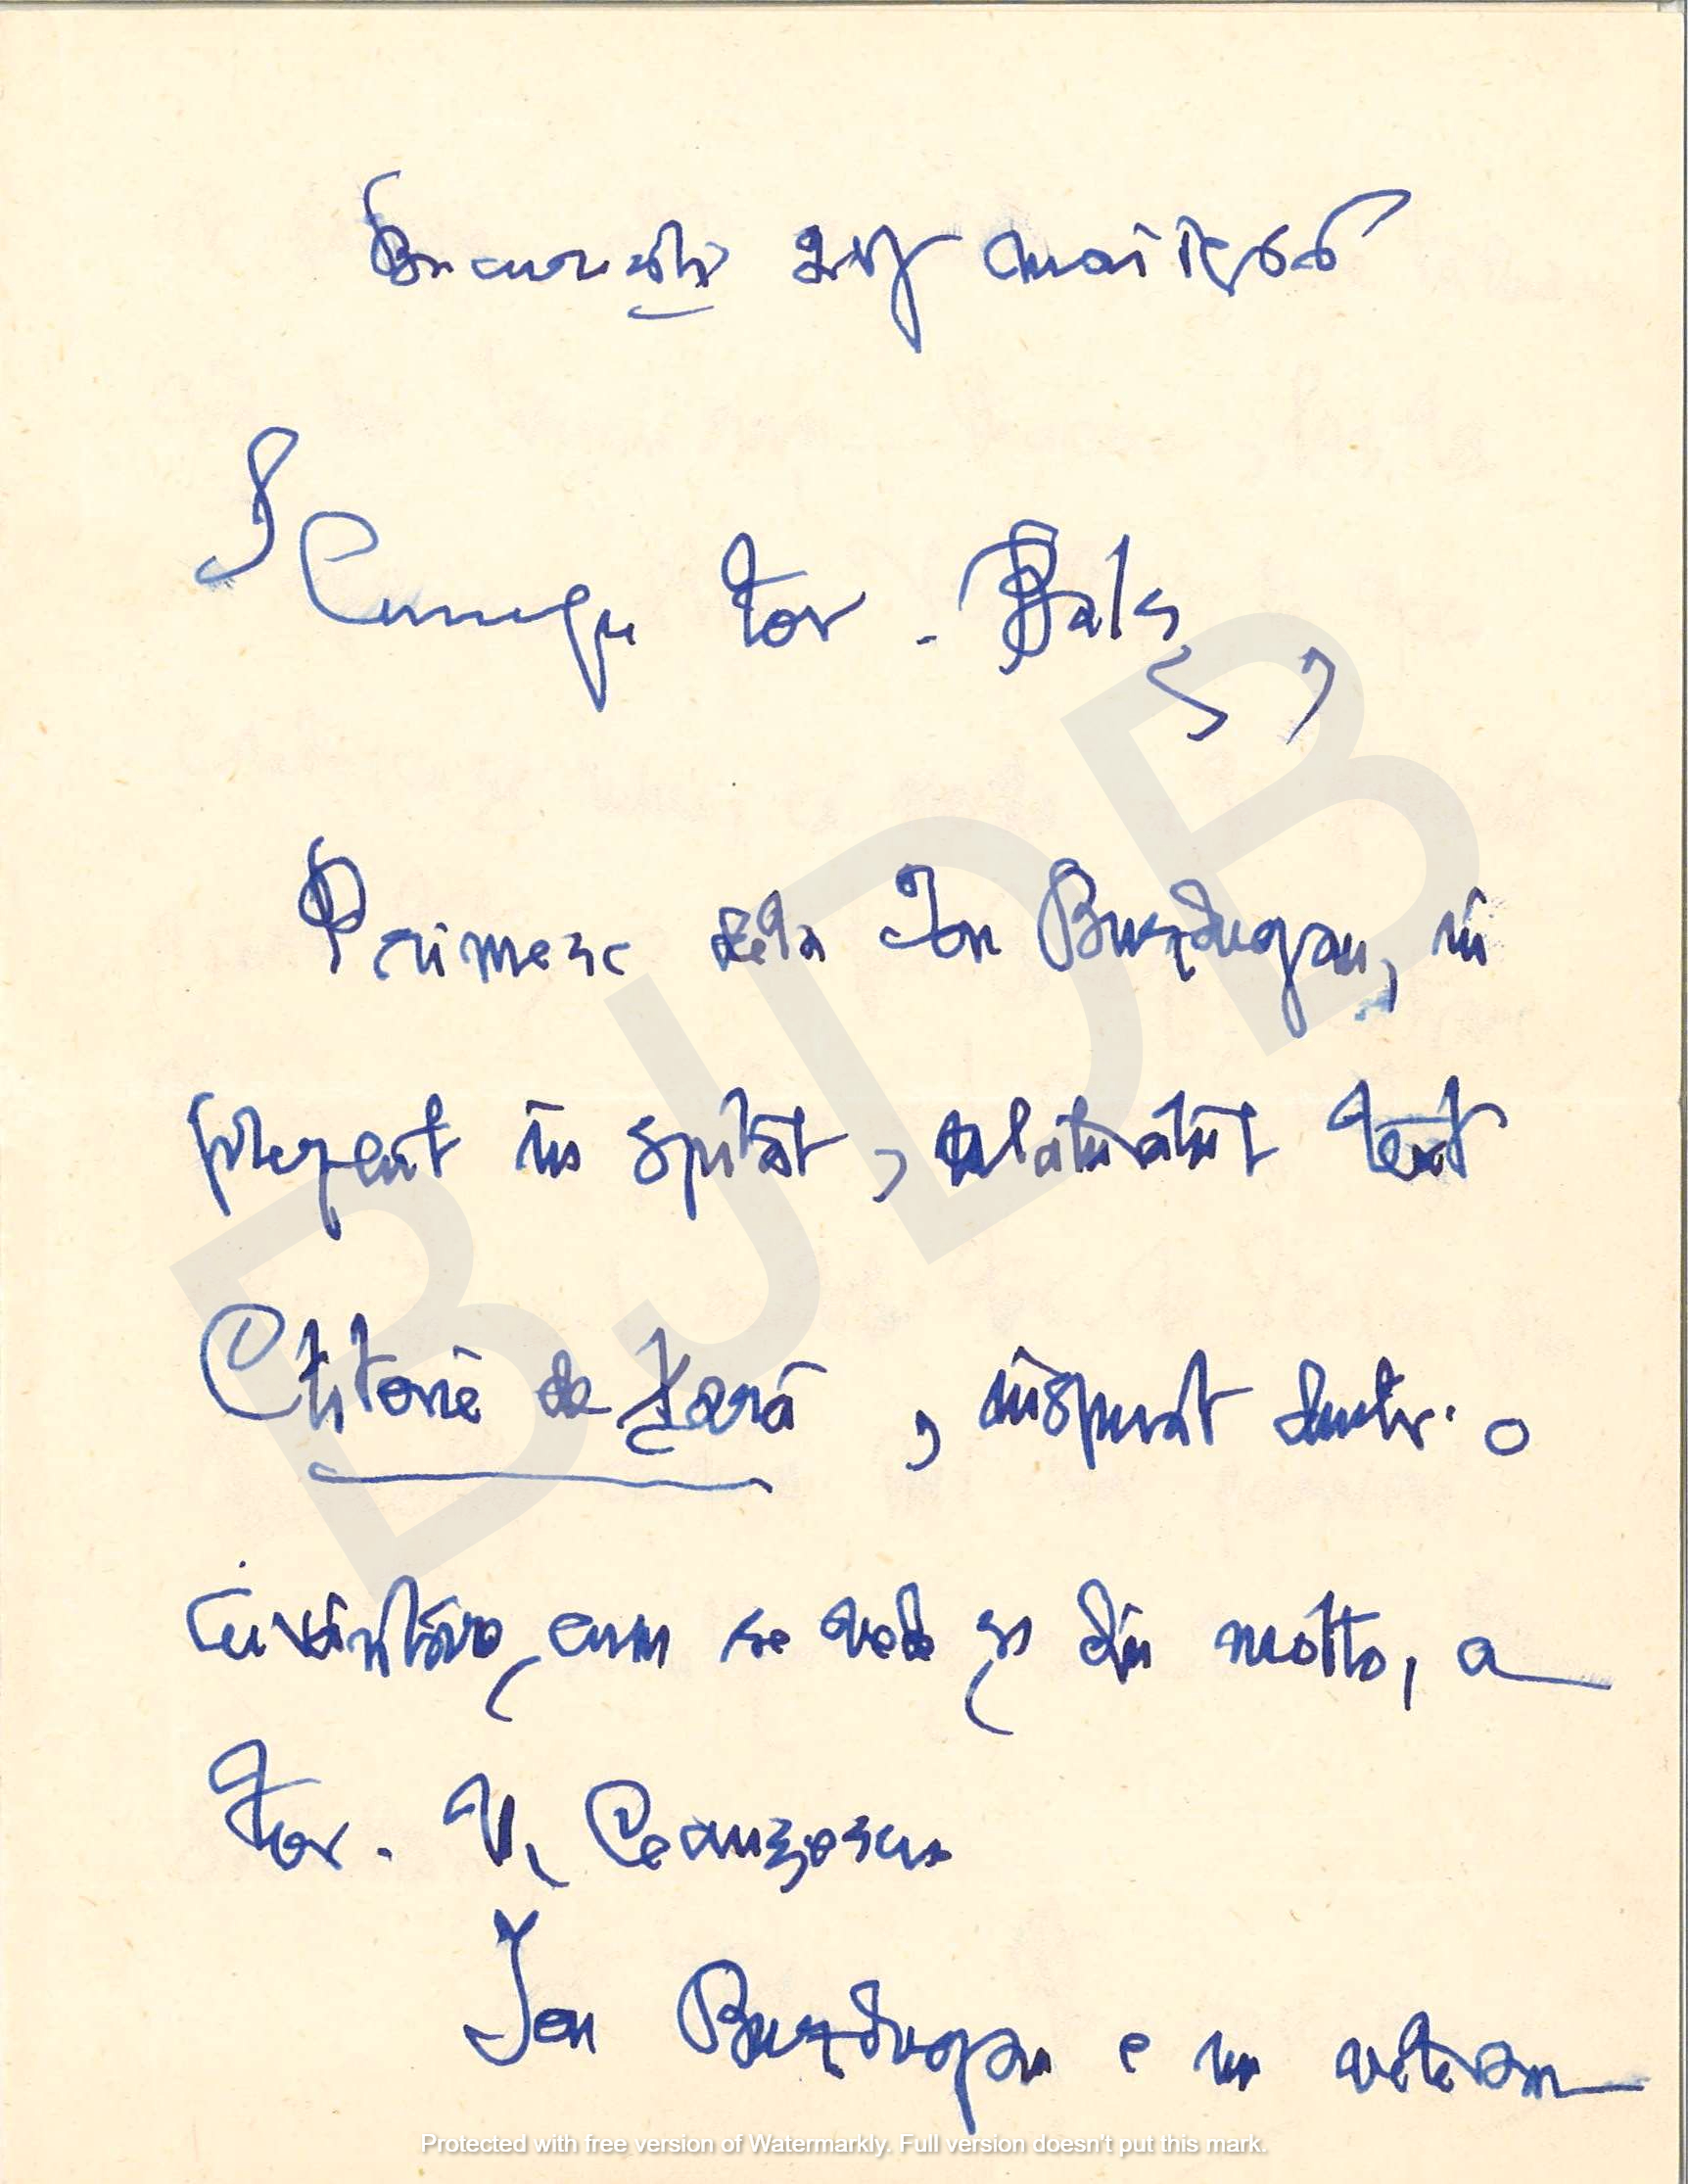 București mai 1966
Scumpe tov. Balș,
Primesc dela Ion Buzdugan, în
prezent în spital, alăturatul text
Ctitorie de țară, inspirat dintr-o
cuvîntare, cum se vede și din motto, a
tov. N. Ceaușescu
Ion Buzdugan e un veteran
BJDB
Protected with free version of Watermarkly. Full version doesn't put this mark.